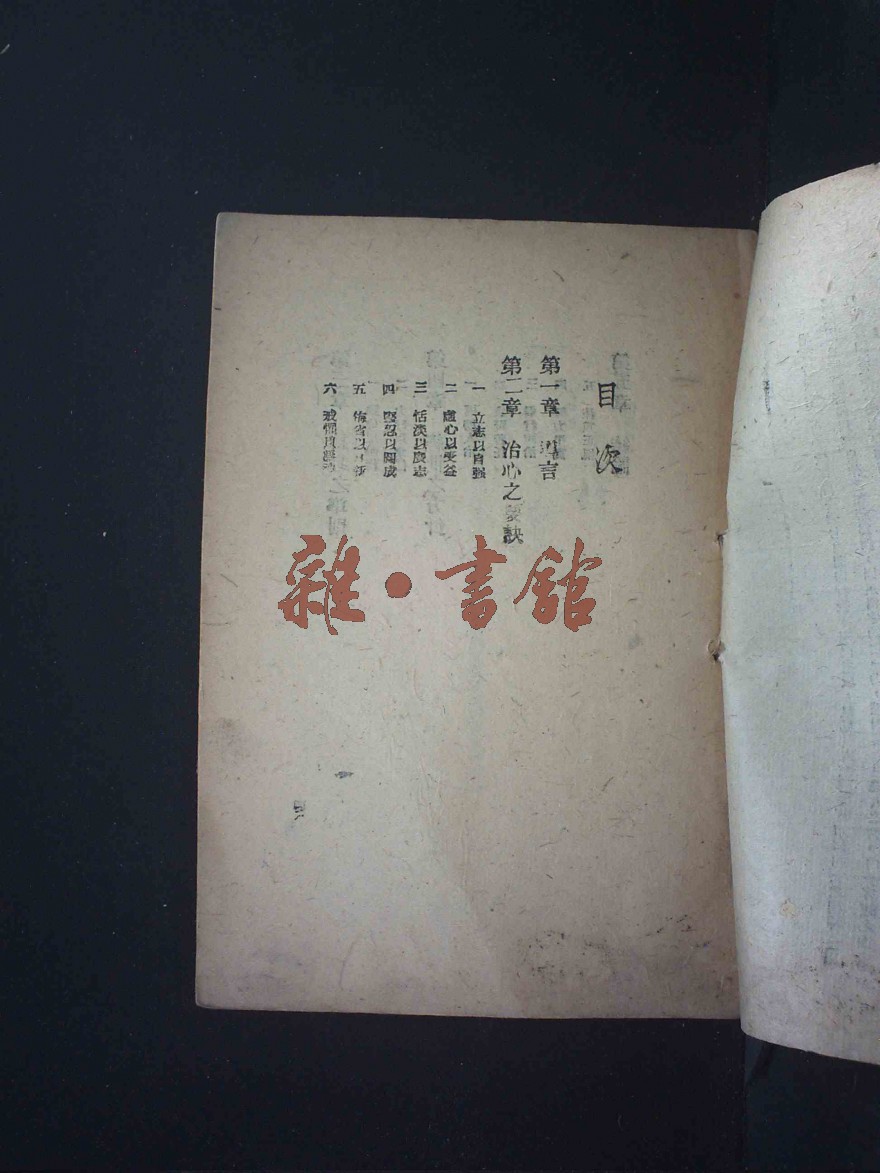 目次
第一章 引言
第二章 治心之要訣
一 立志以自强
二 虛心以受益
三 恬淡以廣志
四 堅忍以圖成
五 悔省以自新
六 戒慎
雜·書館